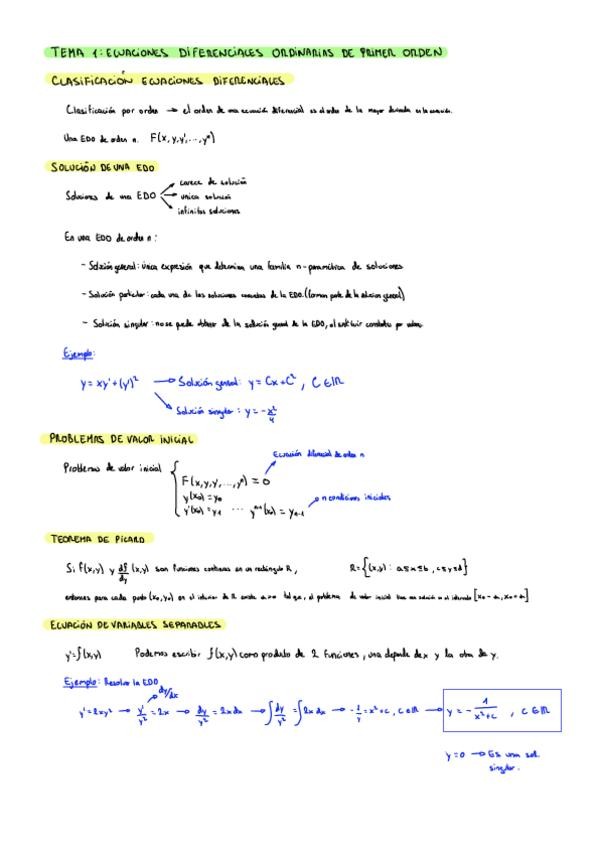 TEMA 1: ECUACIONES DIFERENCIALES ORDINARIAS DE PRIMER ORDEN
CLASIFICACIÓN ECUACIONES DIFERENCIALES
Clasificación por orden → el orden de una ecuación diferencial es el orden de la mayor derivada en la ecuación.
Una EDO de orden n. F(x,y,y',...,yⁿ)
SOLUCIÓN DE UNA EDO
Soluciones de una EDO
carece de solución
única solución
infinitas soluciones
En una EDO de orden n:
- Solución general: única expresión que determina una familia n-paramétrica de soluciones
- Solución particular: cada una de las soluciones concretas de la EDO. (forman parte de la solución general)
- Solución singular: no se puede obtener de la solución general de la EDO, al sustituir constantes por valores
Ejemplo:
y = xy' + (y')² → Solución general: y = Cx + C², C ∈ ℝ
Solución singular: y = -x²/4
PROBLEMAS DE VALOR INICIAL
Ecuación diferencial de orden n
Problemas de valor inicial { F(x,y,y',...,yⁿ) = 0
y(x₀) = y₀
y'(x₀) = y₁ ... yⁿ⁻¹(x₀) = yₙ₋₁
n condiciones iniciales
TEOREMA DE PICARD
Si f(x,y) y df/dy (x,y) son funciones continuas en un rectángulo R, R = {(x,y): a≤x≤b, c≤y≤d}
entonces para cada punto (x₀,y₀) en el interior de R existe α>0 tal que, el problema de valor inicial tiene una solución en el intervalo [x₀-α, x₀+α]
ECUACIÓN DE VARIABLES SEPARABLES
y' = f(x,y) Podemos escribir f(x,y) como producto de 2 funciones, una depende de x y la otra de y.
Ejemplo: Resolver la EDO
dy/dx
y' = 2xy² → y'/y² = 2x → dy/y² = 2x dx → ∫dy/y² = ∫2x dx → -1/y = x² + c, c ∈ ℝ → y = -1/(x²+c), c ∈ ℝ
y = 0 → Es una sol.
singular.